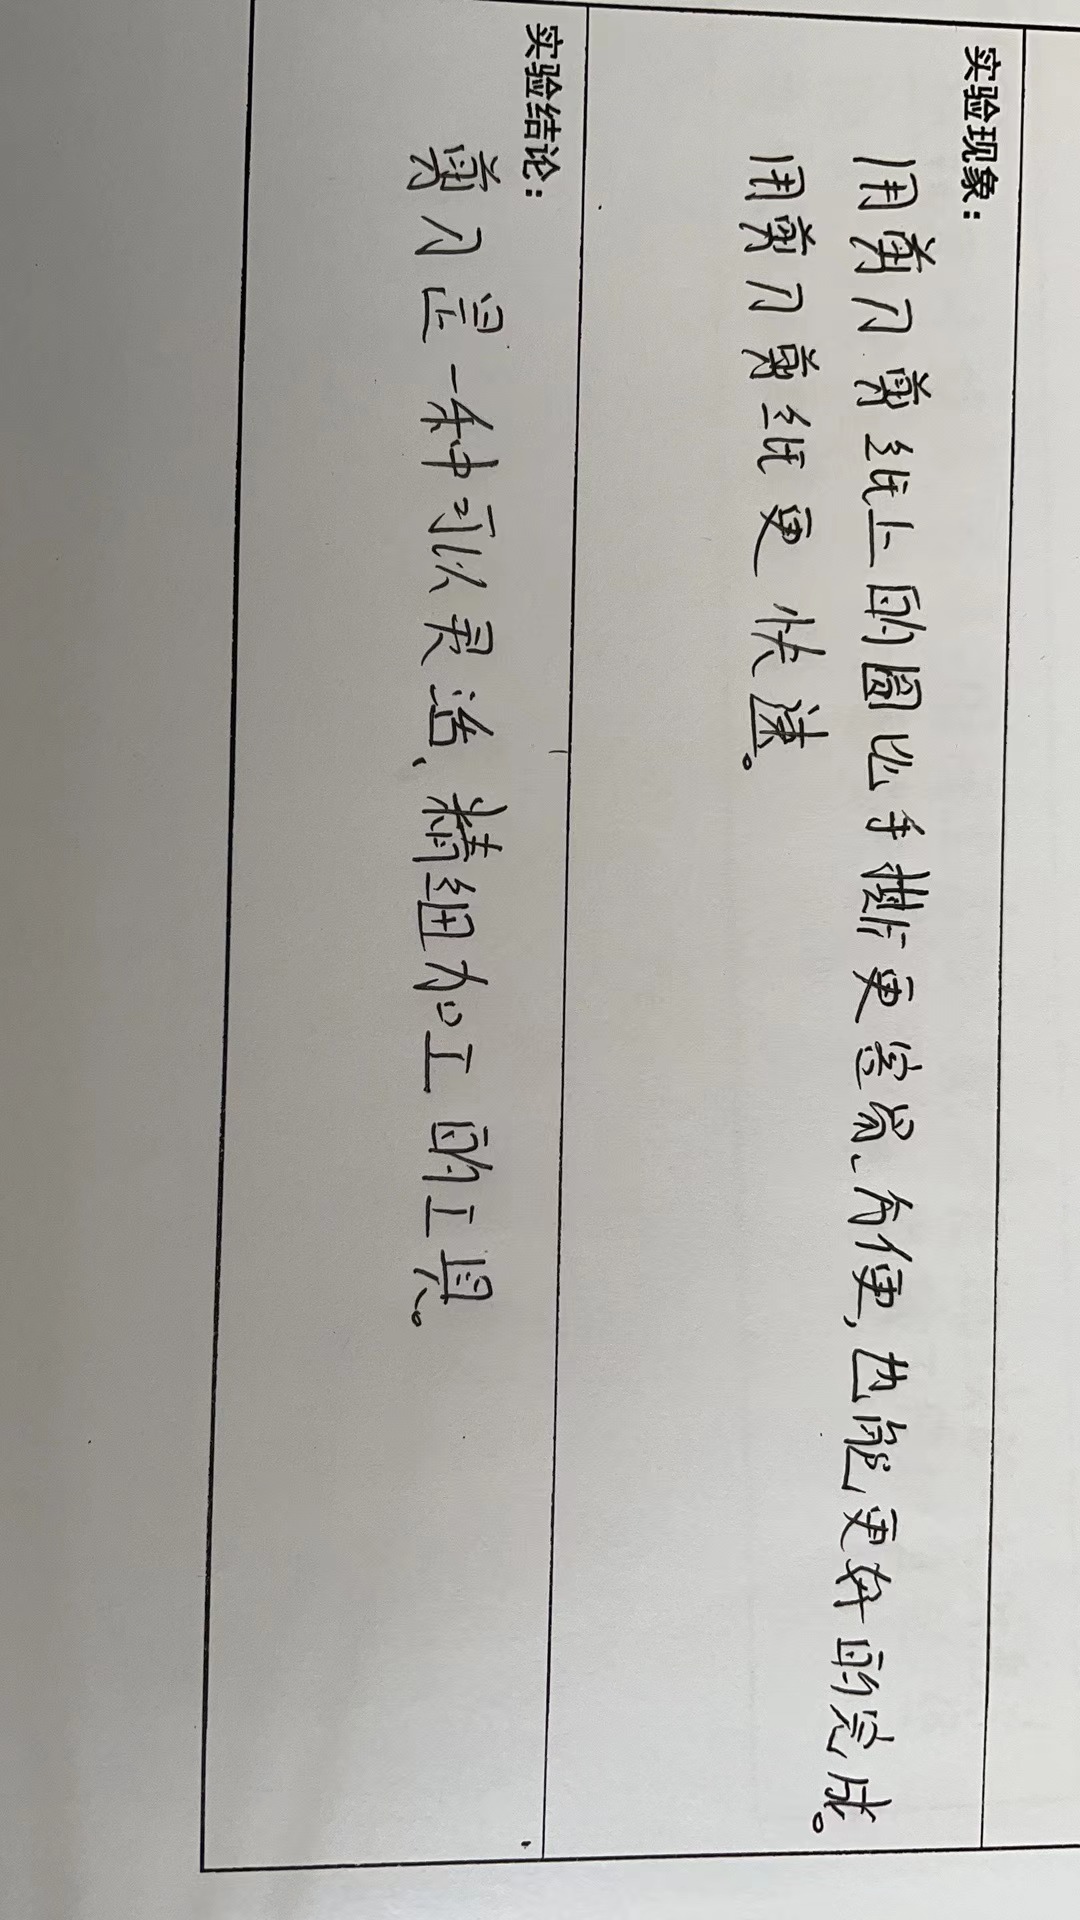 实验现象：
用剪刀剪纸上的圆比手撕更容易、方便，也能更好的完成。
用剪刀剪纸更快速。
实验结论：
剪刀是一种可以灵活、精细加工的工具。